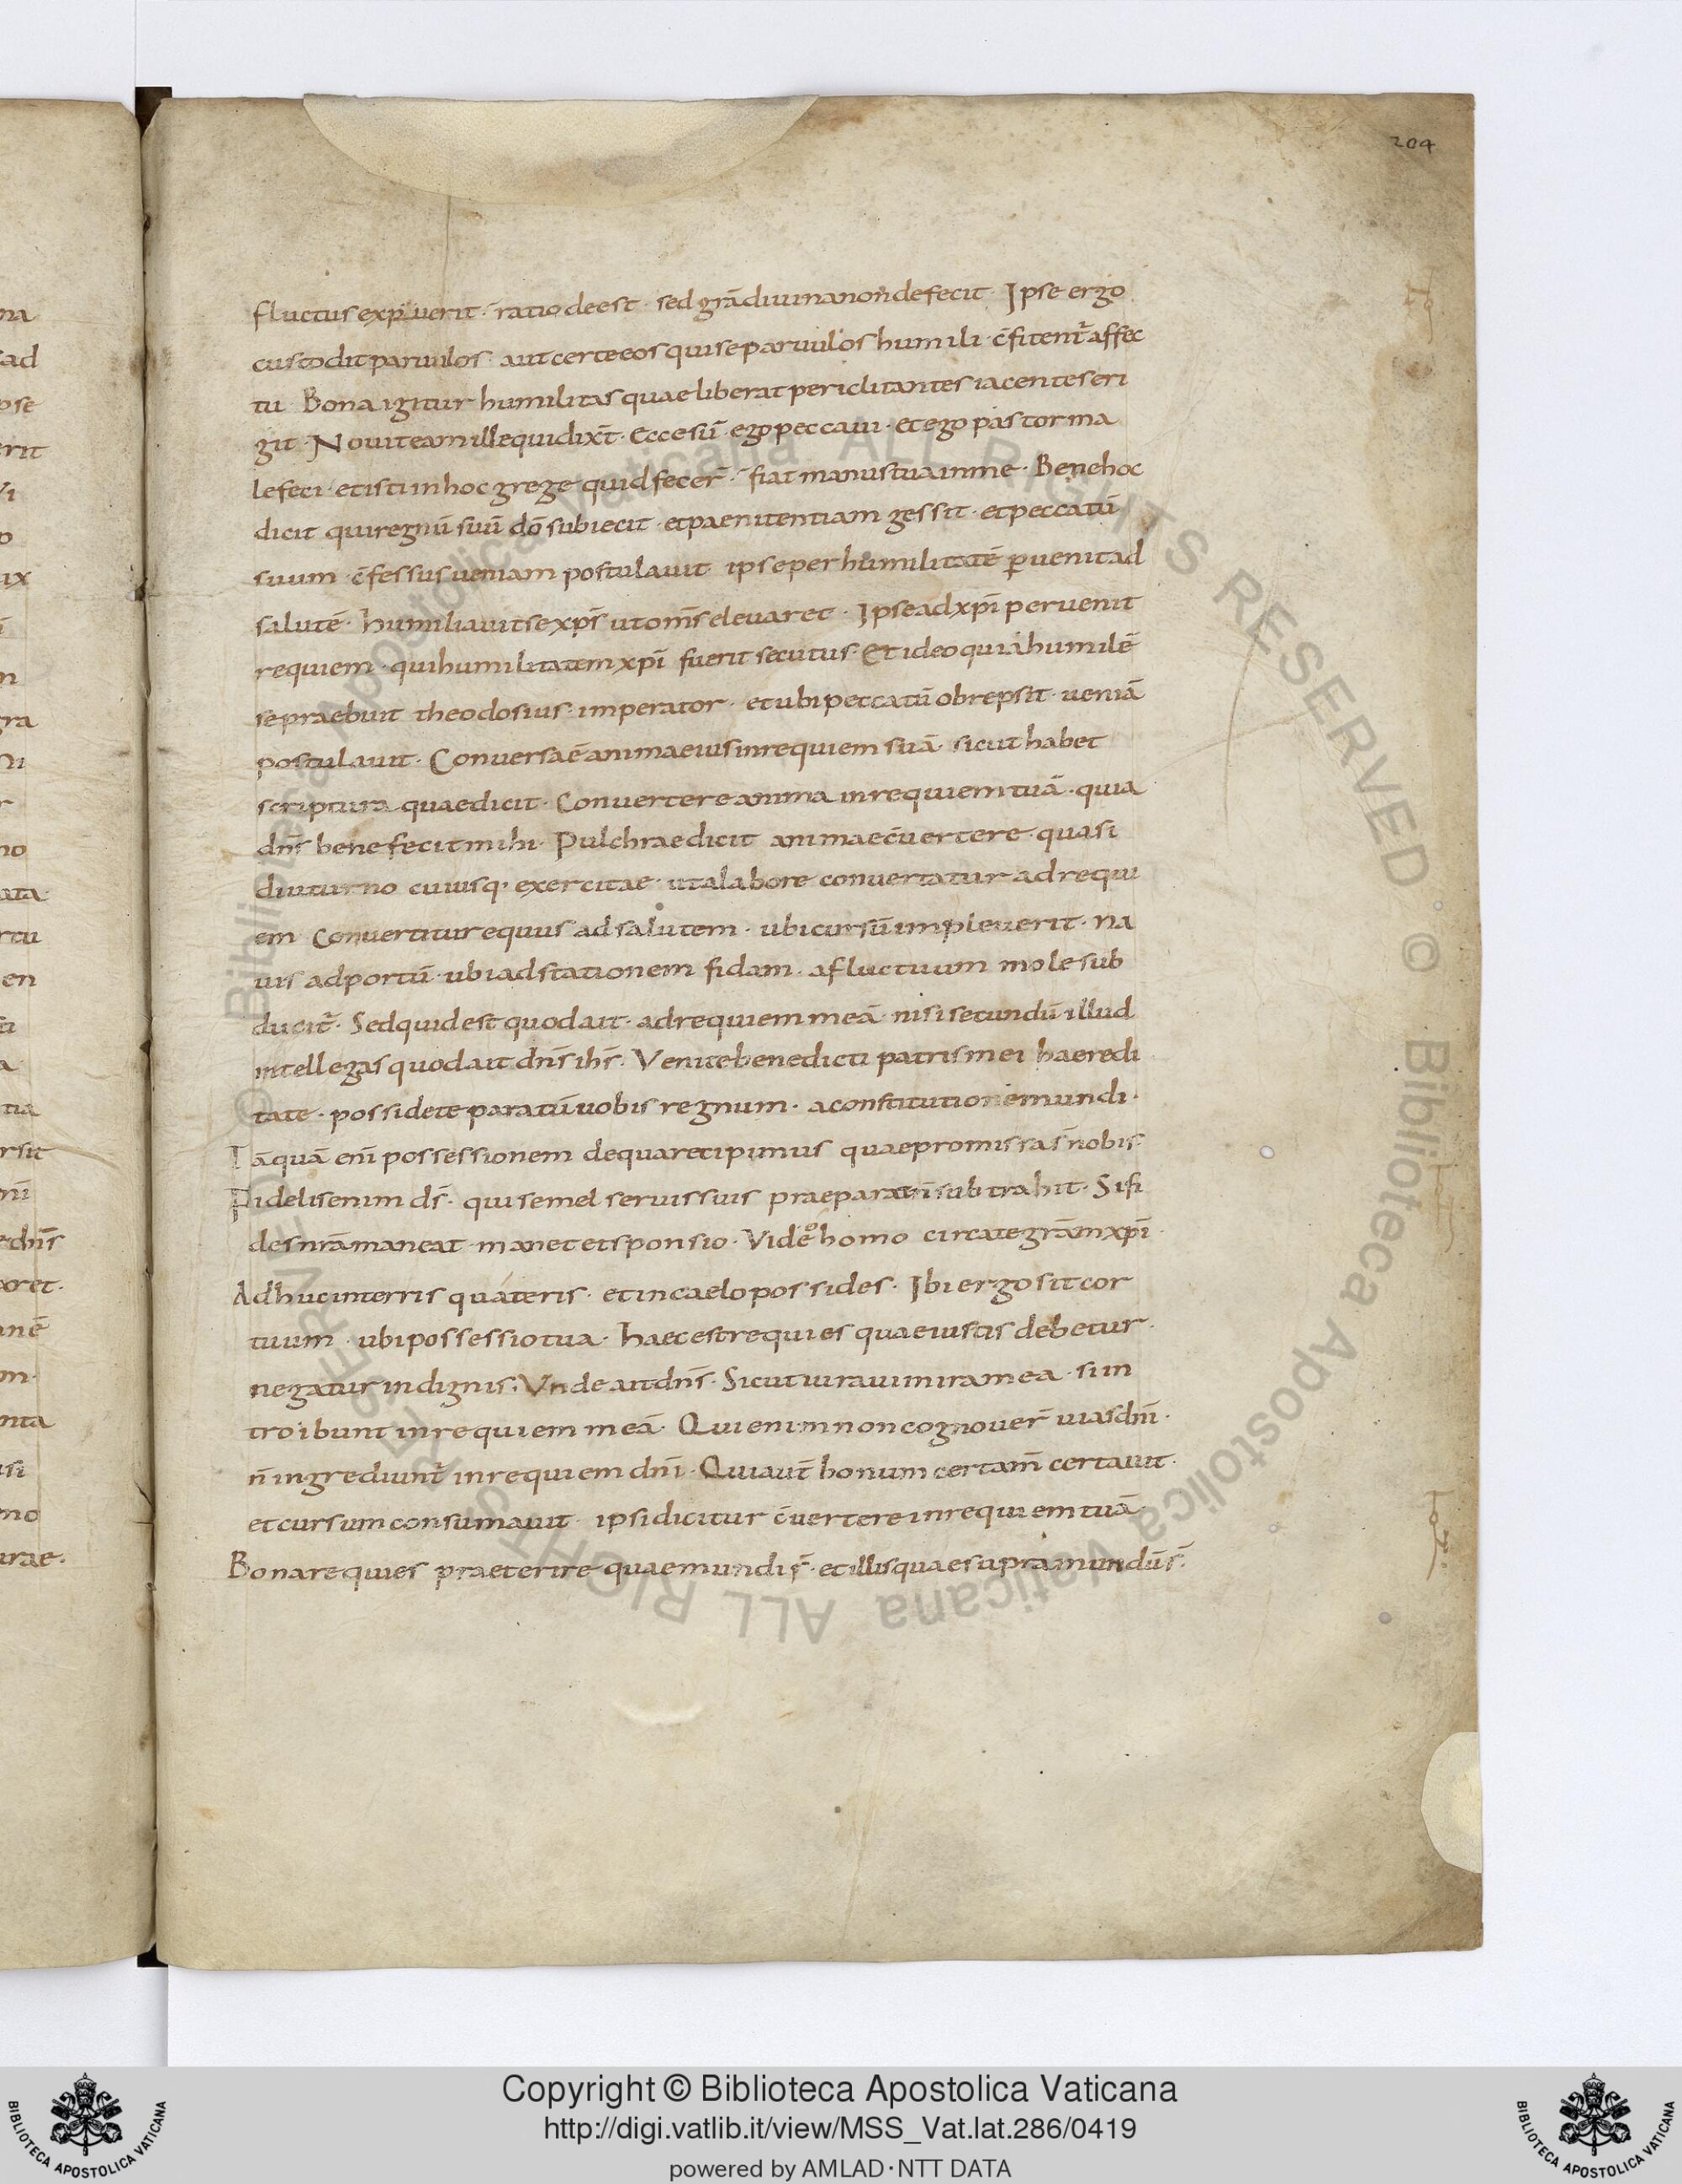 204
fluctus expauerit · ratio deest · sed grā diuina non defecit · Ipse ergo
custodit paruulos · aut certe eos qui se paruulos humili · c̄fitent̄ affec
tu Bona igitur humilitas quae liberat periclitantes iacentes eri
git · Nouit eam ille qui dix̄t · Ecce sū ego peccaui · et ego pastor ma
le feci · et isti in hoc grege quid fecer̄ · fiat manus tua in me · Bene hoc
dicit qui regnū suū dō subiecit · et paenitentiam gessit · et peccatū
suum c̄fessus ueniam postulauit ipse per humilitatē ꝑuenit ad
salutē · humiliauit se xp̄s ut om̄s eleuaret · Ipse ad xp̄i peruenit
requiem · qui humilitatem xp̄i fuerit secutus · Et ideo quia humilē
se praebuit theodosius · imperator · et ubi peccatū obrepsit · ueniā
postulauit · Conuersa ē anima eius in requiem suā · sicut habet
scriptura quae dicit · Conuertere anima in requiem tuā · quia
dn̄s benefecit mihi · Pulchrae dicit animae c̄uertere · quasi
diuturno cuiusq; exercitae · ut a labore conuertatur ad requi
em Conuertitur equus ad salutem · ubi cursū impleuerit · na
uis ad portū · ubi ad stationem fidam · a fluctuum mole sub
ducit̄ · Sed quid est quod ait · ad requiem meā · nisi secundū illud
intellegas quod ait dn̄s ih̄s · Venite benedicti patris mei haeredi
tate · possidete paratū uobis regnum · a constitutione mundi ·
Tāquā eni̅ possessionem de qua recipimus quae promissa s̄ nobis ·
Fidelis enim ds̄ · qui semel seruis suis praeparat n̄ subtrahit · Si fi
des nr̄a maneat · manet et sponsio · Vide ̊ homo circa te grām xp̄i ·
Adhuc in terris quateris · et in caelo possides · Ibi ergo sit cor
tuum · ubi possessio tua · haec est requies quae iustis debetur ·
negatur indignis · Vnde ait dn̄s · Sicut iuraui in ira mea · si in
troibunt in requiem meā · Qui enim non cognouer̄ uias dn̄i ·
n̄ ingrediunt̄ in requiem dn̄i · Qui aut̄ bonum certam̄ certauit ·
et cursum consumauit · ipsi dicitur c̄uertere in requiem tuā ·
Bona requies praeterire quae mundi s̄ · et illis quae supra mundū s̄ ·
Copyright © Biblioteca Apostolica Vaticana
http://digi.vatlib.it/view/MSS_Vat.lat.286/0419
powered by AMLAD·NTT DATA
BIBLIOTECA APOSTOLICA VATICANA
BIBLIOTECA APOSTOLICA VATICANA